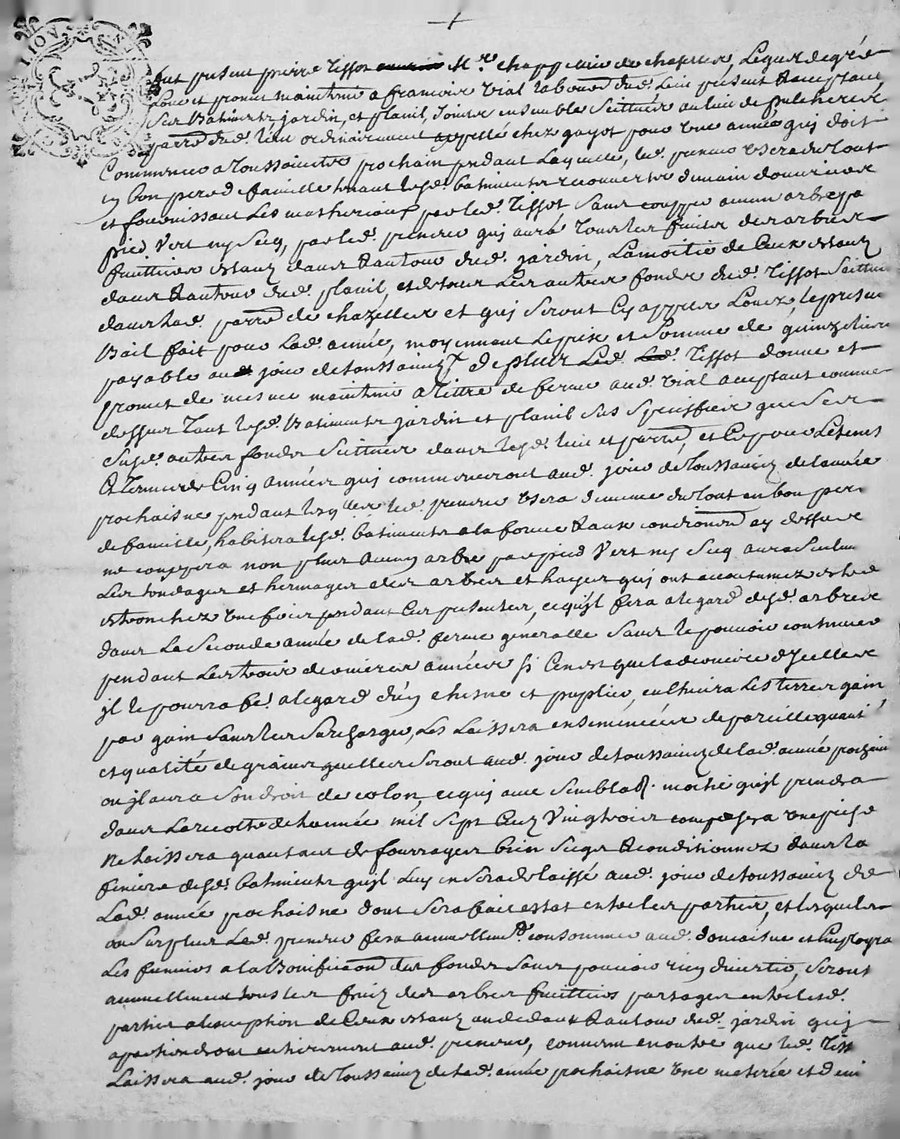 LIOV
fut present pierre Tissot Mre chappelier de chazelles, Lequel de gré
Loue et promet maintenir a francois vial laboureur dud. Lieu present & acceptant
Ses Batiments jardin, et planil, Joints ensemble scittues au lieu de pulcherieu
parre dud. lieu ordinairement appellé chez gayot pour une année qui doit
Commencer a Toussaints prochain pendant Laquelle, led. preneur usera du Tout
en bon pere de famille tenant lesd. batiments recouverts de main d'ouvrier
et fournissant Les matheriaux par led. Tissot sans coupper aucun arbre pa
pied vert ny secq, par led. preneur qui aura Tous les fruits des arbres
fruittiers estans dans & autour dud. jardin, La moitié de Ceux estans
dans & autour dud. planil, et de tous Les autres fonds dud. Tissot scittues
dans lad. parre de chazelles et qui seront Cy appres Louez le present
Bail fait pour Lad. année, moyennant Le prix et somme de quinze livres
payable aud. jour de toussaints de plus Led. Tissot donne et
promet de mesme maintenir a Tittre de ferme aud. vial acceptant comme
dessus Tout lesd. Batiments jardin et planil sus speciffiez que ses
susd. autres fonds scittues dans lesd. lieu et parre, et Ce pour Le temps
& Terme de Cinq années qui commenceront aud. jour de Toussaints de l'année
prochaine pendant lesquelles led. preneur usera de mesme du Tout en bon pere
de famille, habitera lesd. batiments a la forme & aux conditions cy dessus
ne couppera non plus Aucun arbre par pied vert ny secq aura seulem
Les tondages et hermages des arbres et hayes qui ont accoutumez estre
estronchez une fois pendant Ce qu'il fera a legard desd. arbres
dans La seconde année de lad. ferme generalle sans le pouvoir continuer
pendant Les trois dernieres années si Ce n'est que la derniere d'ycelles
il le pourra a legard d'un chesne et puplier, cultivera Les terres gain
par gain sans les surcharger, Les Laissera ensemencées de pareille quantité
et qualité de grains quelles seront aud. jour de toussaints de lad. année prochain
ou il aura son droit de colon, ce qui avec semblab. moitié qu'il prendra
dans La recolte de l'année mil sept Cent vingt trois composera une prise
ne Laissera quautant de fourrages bien secqs & conditionnez dans la
feniere desd. batiments qu'il Luy en sera delaissé aud. jour de toussaints de
Lad. année prochaine dont sera fait estat entre les parties, et lesquels
ou surplus Led. preneur fera annuellement consommer aud. domaine et Employra
Les fumiers a la Bonification des fonds sans pouvoir rien divertir, seront
annuellement tous les fruits des arbres fruittiers partagez entre lesd.
parties a l'exception de Ceux estans au dedans & autour dud. jardin qui
apartiendront entierement aud. preneur, convenu en outre que led. Tissot
Laissera aud. jour de Toussaints de lad. année prochaine une meterée et demi